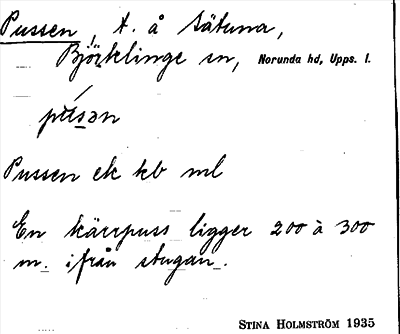 Pussen, t. å Sätuna,
Björklinge sn, Norunda hd, Upps. l.
pusən
Pussen ek kb ml
En kärrpuss ligger 200 à 300
m. ifrån stugan.
STINA HOLMSTRÖM 1935